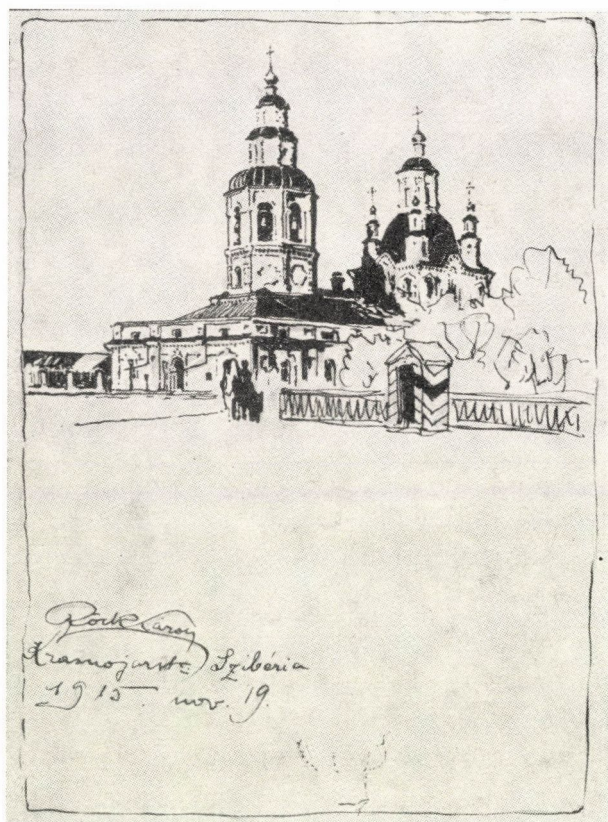 Röck Károly
Krasnojarsk Szibéria
1915. nov. 19.